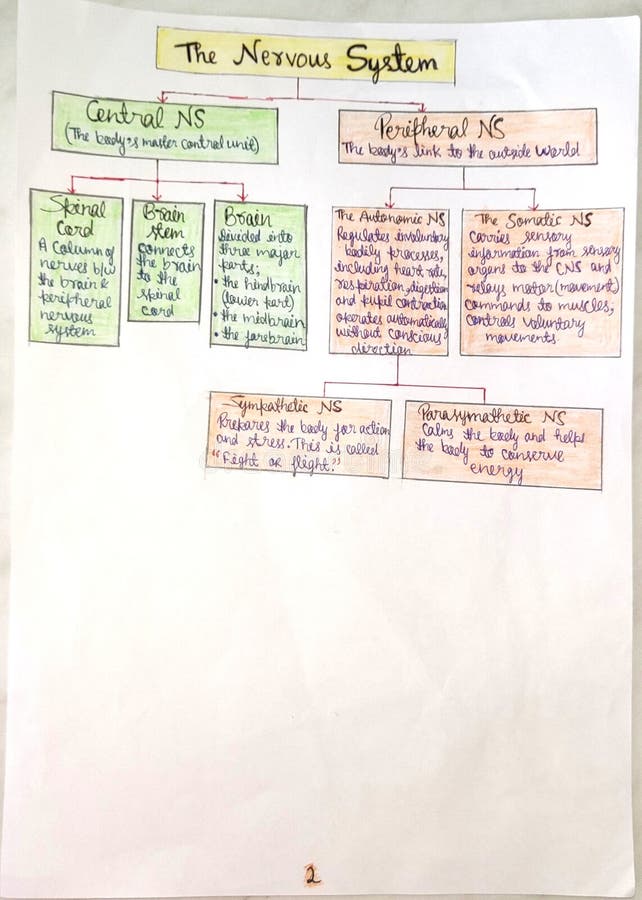 The Nervous System
Central NS
(The body's master control unit)
Peripheral NS
The body's link to the outside world
Spinal
Cord
A column of
nerves b/w
the brain &
peripheral
nervous
system
Brain
stem
connects
the brain
to the
spinal
cord
Brain
Divided into
three major
parts;
• the hindbrain
(lower part)
• the midbrain
• the forebrain
The Autonomic NS
Regulates involuntary
bodily processes,
including heart rate,
respiration, digestion
and pupil contraction
operates automatically
without conscious
direction
The Somatic NS
Carries sensory
information from sensory
organs to the CNS and
relays motor (movement)
commands to muscles;
controls voluntary
movements.
Sympathetic NS
Prepares the body for action
and stress. This is called
"Fight or flight."
Parasymathetic NS
Calms the body and helps
the body to conserve
energy
2